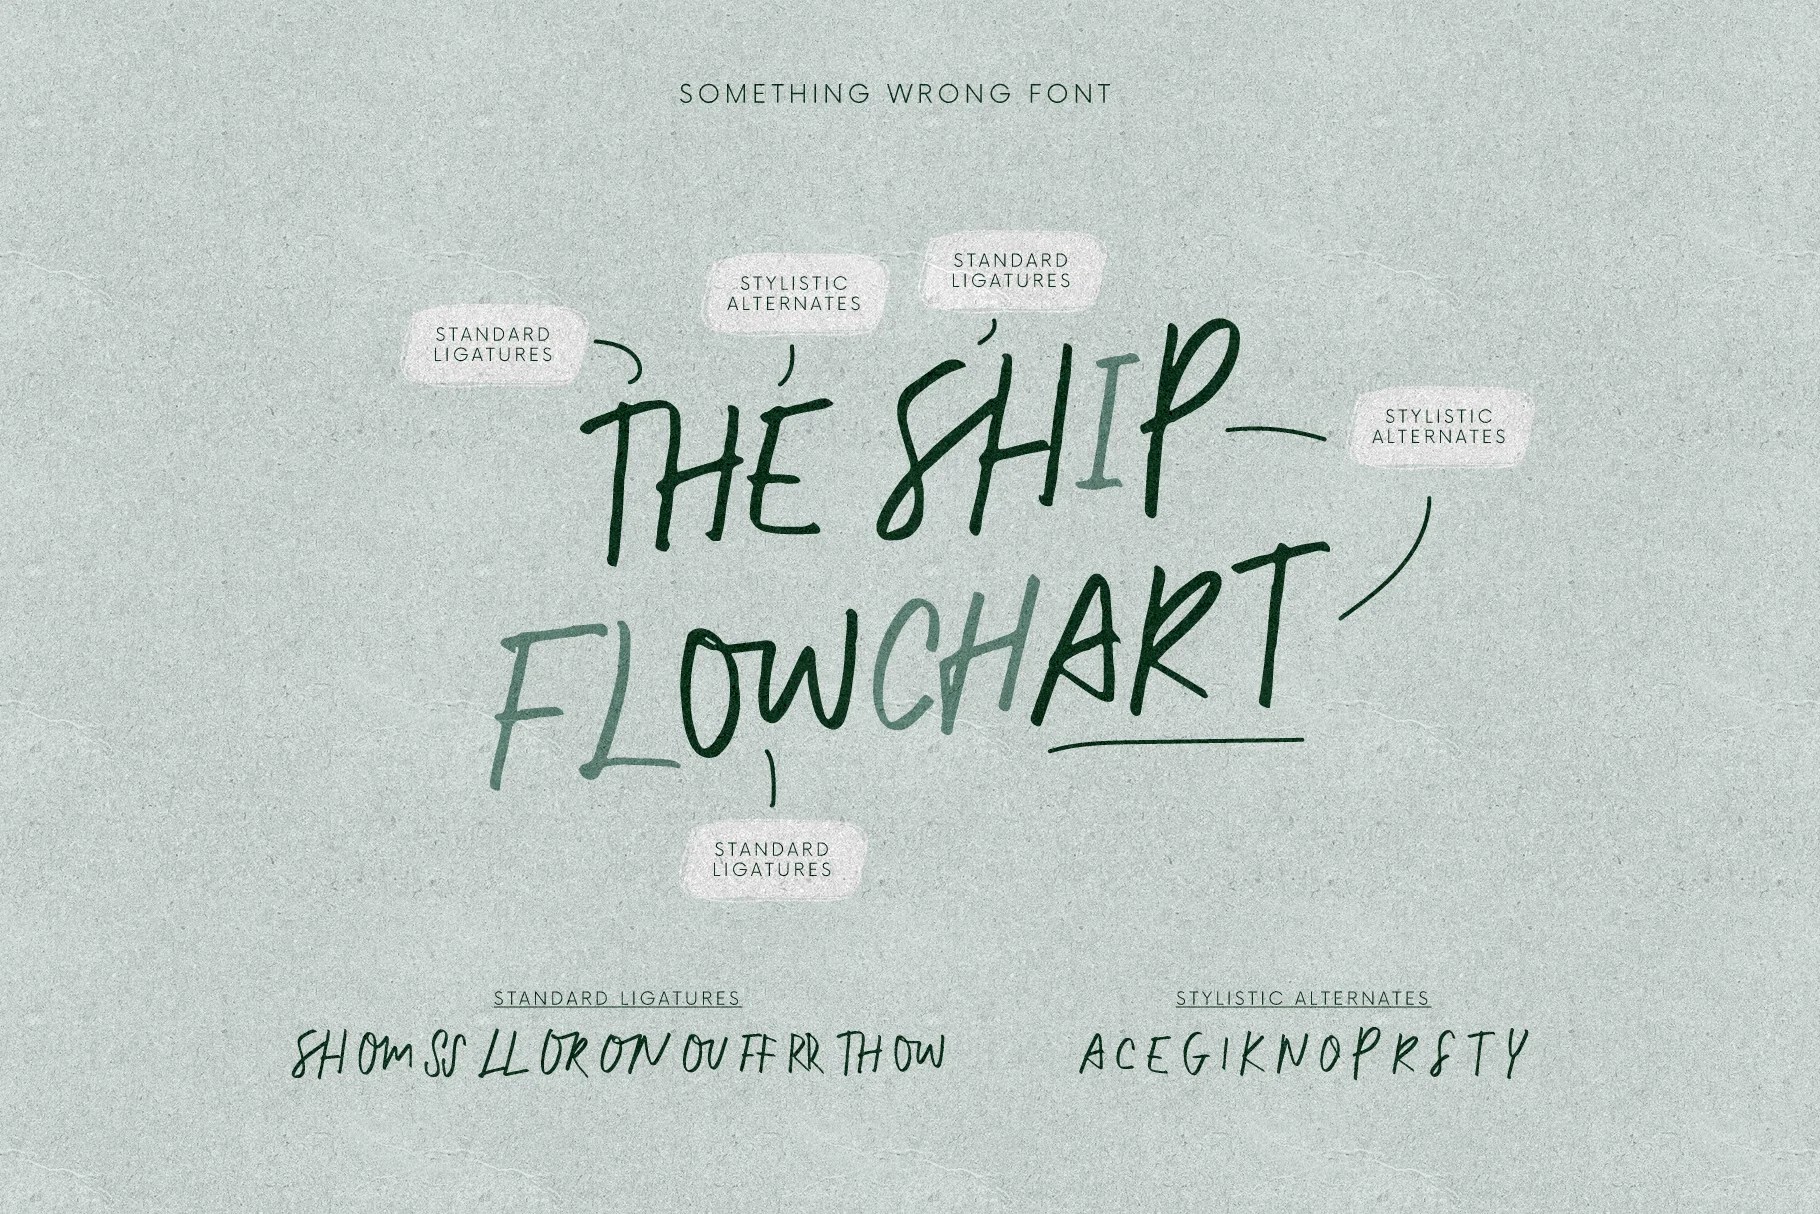 SOMETHING WRONG FONT
STANDARD
LIGATURES
STYLISTIC
ALTERNATES
STANDARD
LIGATURES
STYLISTIC
ALTERNATES
THE SHIP
FLOWCHART
STANDARD
LIGATURES
STANDARD LIGATURES
SH OM SS LL OR ON OU FF RR TH OW
STYLISTIC ALTERNATES
A C E G I K N O P R S T Y